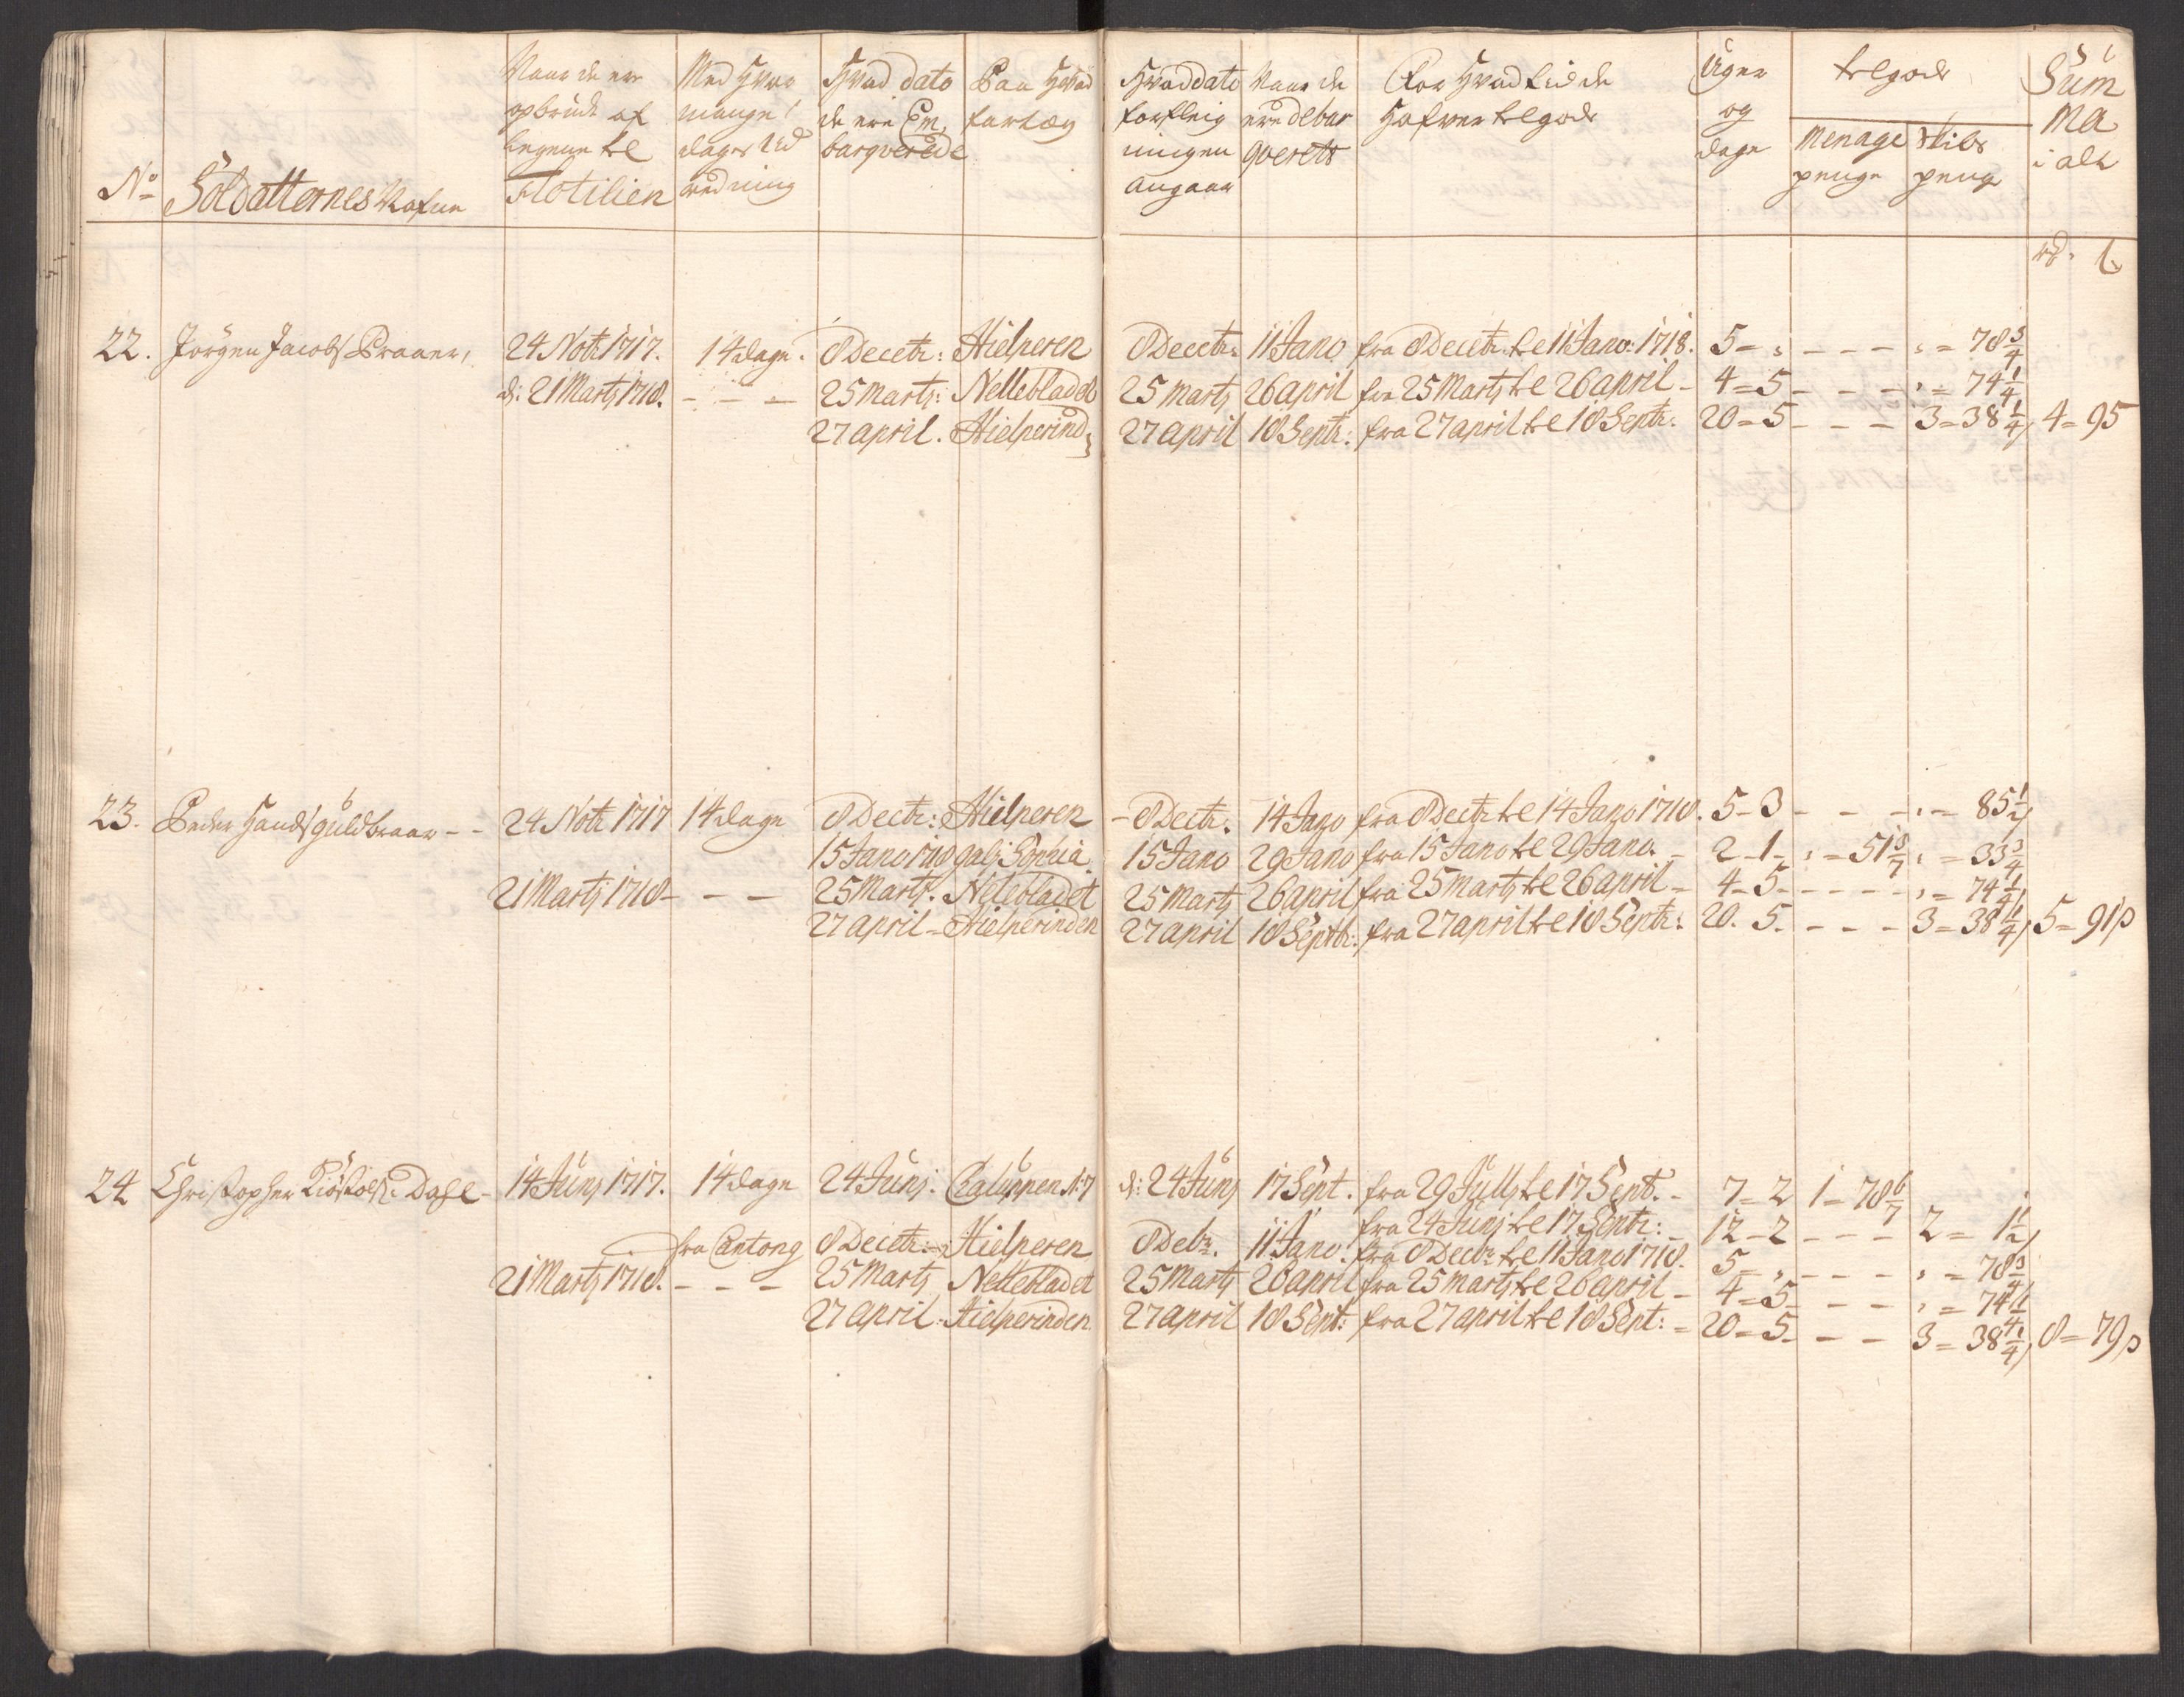 No Soldatternes Nafne
Naar de ere opbrudt af legene til Flotilien
Med Hvor mange dages Udredning
Hvad dato de ere Embarqverede
Paa Hvad fartøy
Hvad dato forpleigningen angaar
Naar de ere debarqverett
For Hvad tid de Hafver tilgode
Uger og dage
tilgode
Menage penge
Skibs penge
Summa i alt
rd. ß
22. Jörgen Jacobs Praaer, 24 Notr 1717. 14 dage. 8 Decetr: Hielperen 8 Decetr: 11 Jano fra 8 Decetr. til 11 Jano: 1718. 5 = „ - - - „ = 78 3/4
d: 21 Martj 1718. - - - 25 Martj: Nettebladet 25 Martj 26 april fra 25 Martj til 26 april - 4 = 5 - - - „ = 74 1/4
27 april. Hielperind 27 april 18 Septr: fra 27 april til 18 Septr: 20 = 5 - - - 3 = 38 1/4 4 = 95
23. Peder Hands Guldbraar - - 24 Notr 1717 14 dage 8 Dectr: Hielperen - 8 Dectr. 14 Jano fra 8 Dectr til 14 Jano 1718. 5 - 3 - - - „ = 85 1/2
15 Jano 1718 galj Sophia 15 Jano 29 Jano fra 15 Jano til 29 Jano. - 2 - 1 - „ = 51 3/7 „ = 33 3/4
21 Martj 1718 - - - 25 Martj. Nettebladet 25 Martj 26 april fra 25 martj til 26 april - 4 - 5 - - - - „ = 74 1/4
27 april - Hielperinden 27 april 18 Septbr: fra 27 april til 18 Septr: 20. 5. - - - 3 = 38 1/4 5 = 91 ß
24 Christopher Dahl - 14 Junj 1717. 14 dage 24 Junj: Chaluppen N: 7 d: 24 Junj 17 Sept. fra 29 Julj til 17 Sept. - 7 = 2 1 = 78 6/7
fra 24 Junj til 17 Septr: - 12 - 2 - - - 2 = 1 1/2
fra Cantong 8 Decetr: Hielperen 8 Debr. 11 Jano. fra 8 Decbr til 11 Jano 1718. 5 = „ - - - „ = 78 3/4
21 Martj 1718. - - - 25 Martj Nettebladet 25 Martj 26 april fra 25 martj til 26 april - 4 = 5 - - - „ = 74 1/4
27 april. Hielperinden 27 april 18 Sept: fra 27 april til 18 Sept: - 20 = 5 - - - 3 = 38 1/4 8 = 79 ß